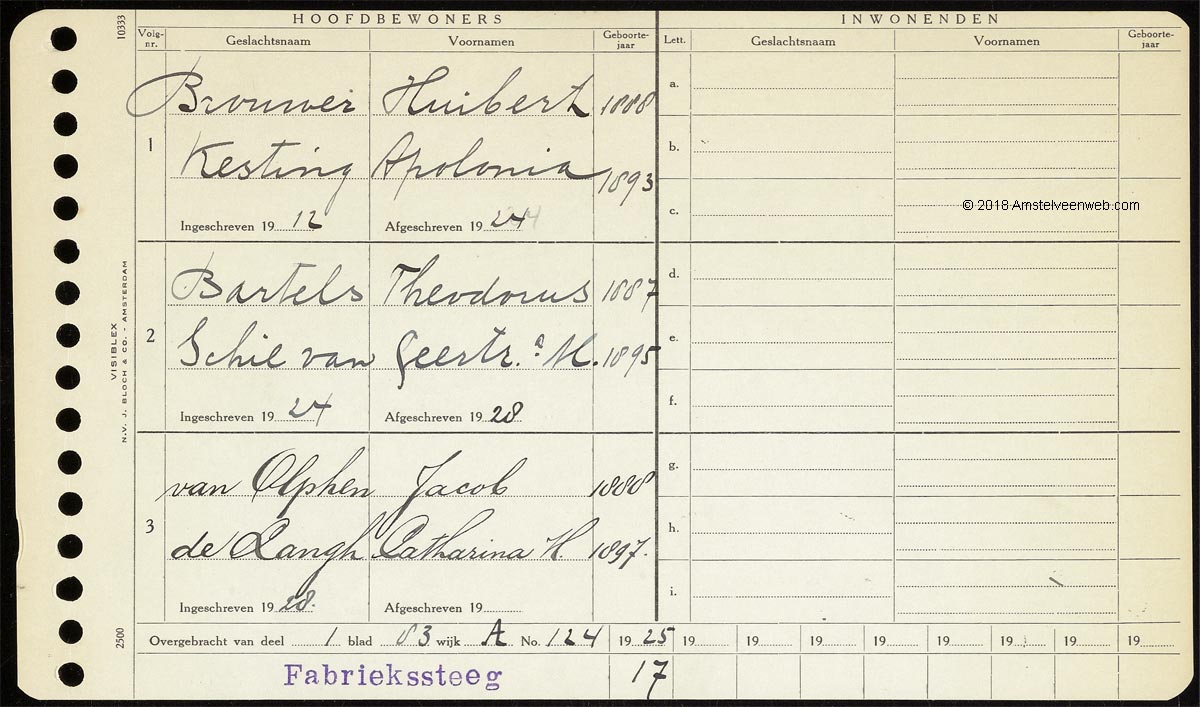 10333
HOOFDBEWONERS INWONENDEN
Volg-nr. Geslachtsnaam Voornamen Geboorte-jaar Lett. Geslachtsnaam Voornamen Geboorte-jaar
1
Brouwer Huibert 1888
Kesting Apolonia 1893
Ingeschreven 19 12 Afgeschreven 19 24
a.
b.
c.
© 2018 Amstelveenweb.com
2
Bartels Theodorus 1887
Schie van Geertr.a M. 1895
Ingeschreven 19 24 Afgeschreven 19 28
d.
e.
f.
3
van Olphen Jacob 1888
de Langh Catharina H. 1897.
Ingeschreven 19 28. Afgeschreven 19
g.
h.
i.
VISIBLEX
N.V. J. BLOCH & CO. - AMSTERDAM
2500
Overgebracht van deel 1 blad 83 wijk A No. 124 19 25 19 19 19 19 19 19 19 19
Fabriekssteeg 17